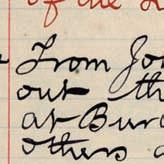 of the
From Jo
out th
at Bur
others